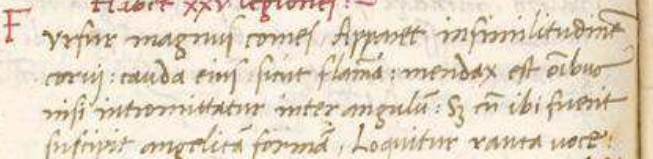 Habet xxv legiones:
F
Urfur magnus comes Apparet in similitudine
corui: cauda eius sicut flam̄a: mendax est oībus
nisi intromittatur inter angulū: Sȝ cū ibi fuerit
suscipit angelicā formā, Loquitur rauca uoce: